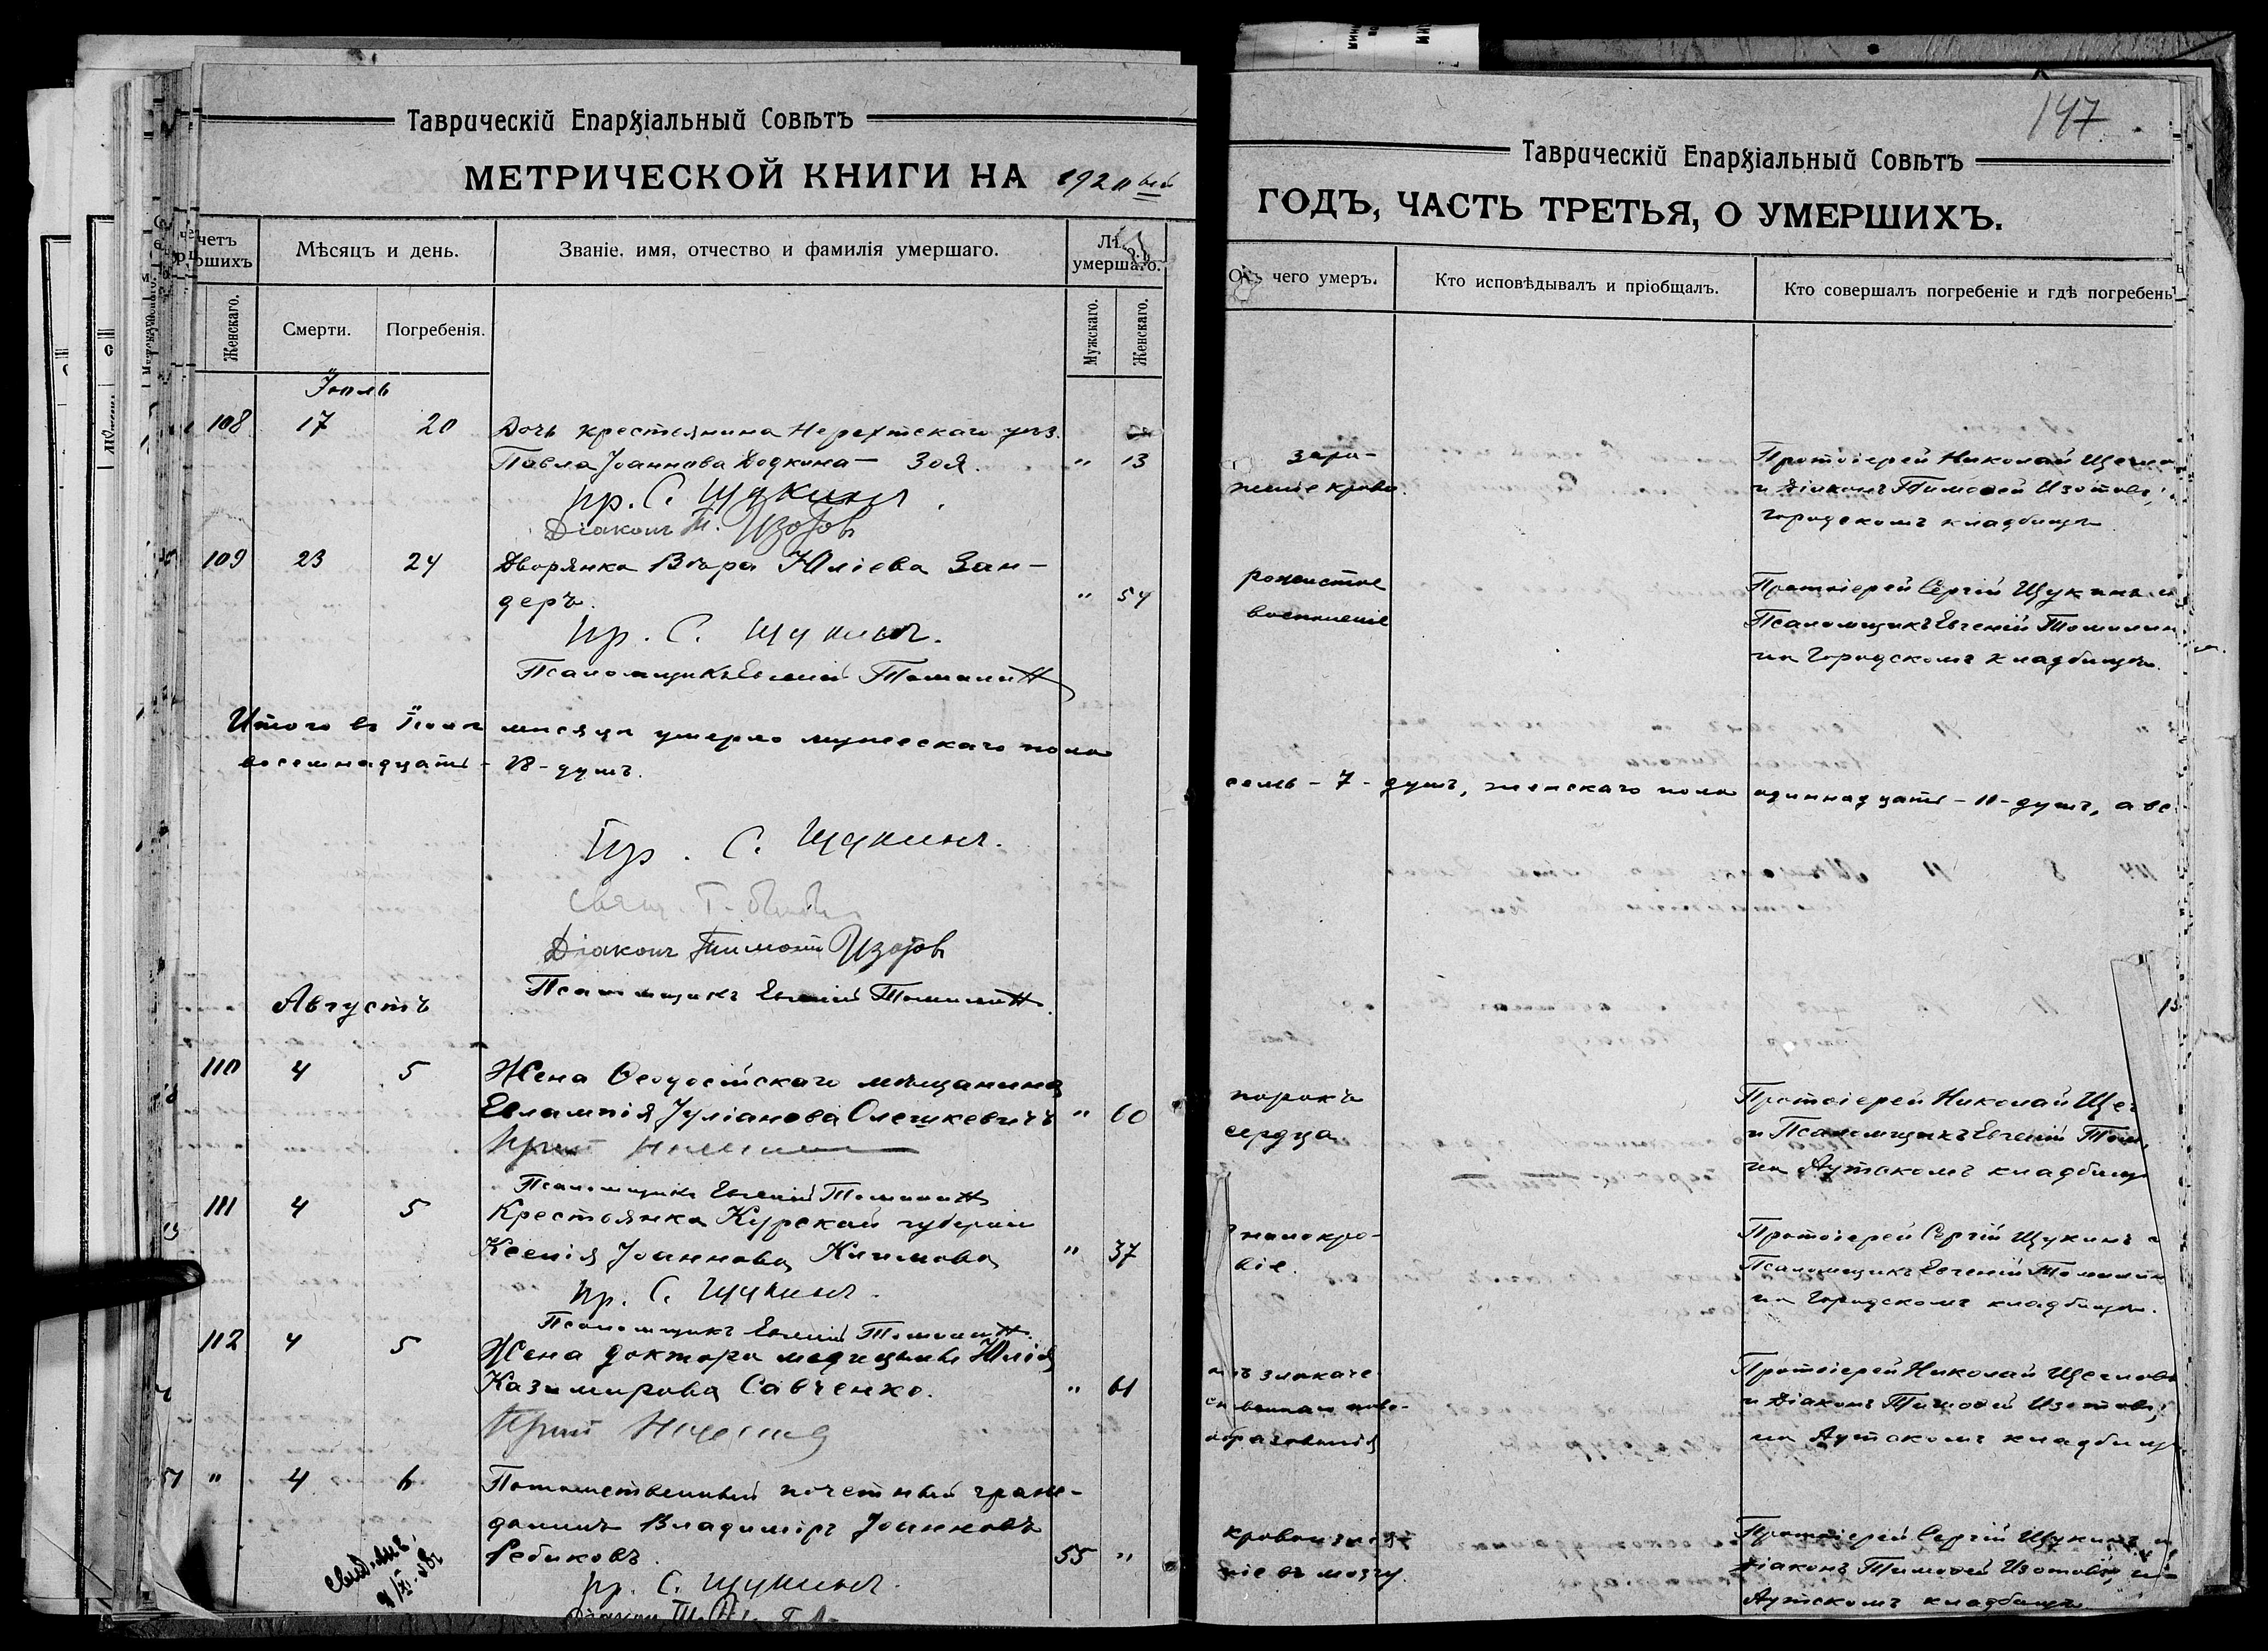 Таврическій Епархіальный Совѣтъ
МЕТРИЧЕСКОЙ КНИГИ НА 1920 ый
четъ
ршихъ
Мѣсяцъ и день.
Званіе, имя, отчество и фамилія умершаго.
умершаго.
Женскаго.
Смерти.
Погребенія.
Мужскаго.
Женскаго.
Іюль
108 17 20 Дочь крестьянина Нерехтскаго уѣз.
Павла Іоаннова Додкина — Зоя. " 13
пр. С. Щукинъ.
Діаконъ Т. Изотов
109 23 24 Дворянка Вѣра Юліева Зан-
деръ. " 54
Пр. С. Щукинъ.
Псаломщикъ Евгеній Томилин
Итого въ Іюлѣ мѣсяцѣ умерло мужескаго пола
восемнадцать - 18 - душъ.
Пр. С. Щукинъ.
Свящ. Г.
Діаконъ Тимоѳей Изотов
Псаломщикъ Евгеній Томилин
Августъ
110 4 5 Жена Ѳеодосійскаго мѣщанина
Евлампія Іуліанова Олешкевичъ " 60
Псаломщикъ Евгеній Томилин
111 4 5 Крестьянка Курской губерніи
Ксенія Іоаннова Климова " 37
пр. С. Щукинъ.
Псаломщикъ Евгеній Томилин
112 4 5 Жена доктора медицины Юлія
Казимирова Савченко. " 61
51 " 4 6 Потомственный почетный граж-
данинъ Владиміръ Іоанновъ
Ребиковъ. 55 "
пр. С. Щукинъ.
147
Таврическій Епархіальный Совѣтъ
ГОДЪ, ЧАСТЬ ТРЕТЬЯ, О УМЕРШИХЪ.
чего умеръ.
Кто исповѣдывалъ и пріобщалъ.
Кто совершалъ погребеніе и гдѣ погребень
зара-
женіе крови.
Протоіерей Николай Щегло
и Діаконъ Тимоѳей Изотовъ;
городскомъ кладбищѣ
рожистое
воспаленіе
Протоіерей Сергій Щукинъ и
Псаломщикъ Евгеній Томилин
на Городскомъ кладбищѣ.
семь - 7 - душъ, женскаго пола одиннадцать - 11 - душъ, а все
порокъ
сердца
Протоіерей Николай Щег
и Псаломщикъ Евгеній Том
на Аутскомъ кладбищ
малокро-
віе.
Протоіерей Сергій Щукинъ и
Псаломщикъ Евгеній Томилин
на Городскомъ кладбищѣ.
отъ злокаче
ственнаго ново-
образованія
Протоіерей Николай Щегловъ
и Діаконъ Тимоѳей Изотовъ;
на Аутскомъ кладбищ
кровоизлія-
ніе въ мозгу.
Протоіерей Сергій Щукинъ и
Діаконъ Тимоѳей Изотовъ, на
Аутскомъ кладбищѣ